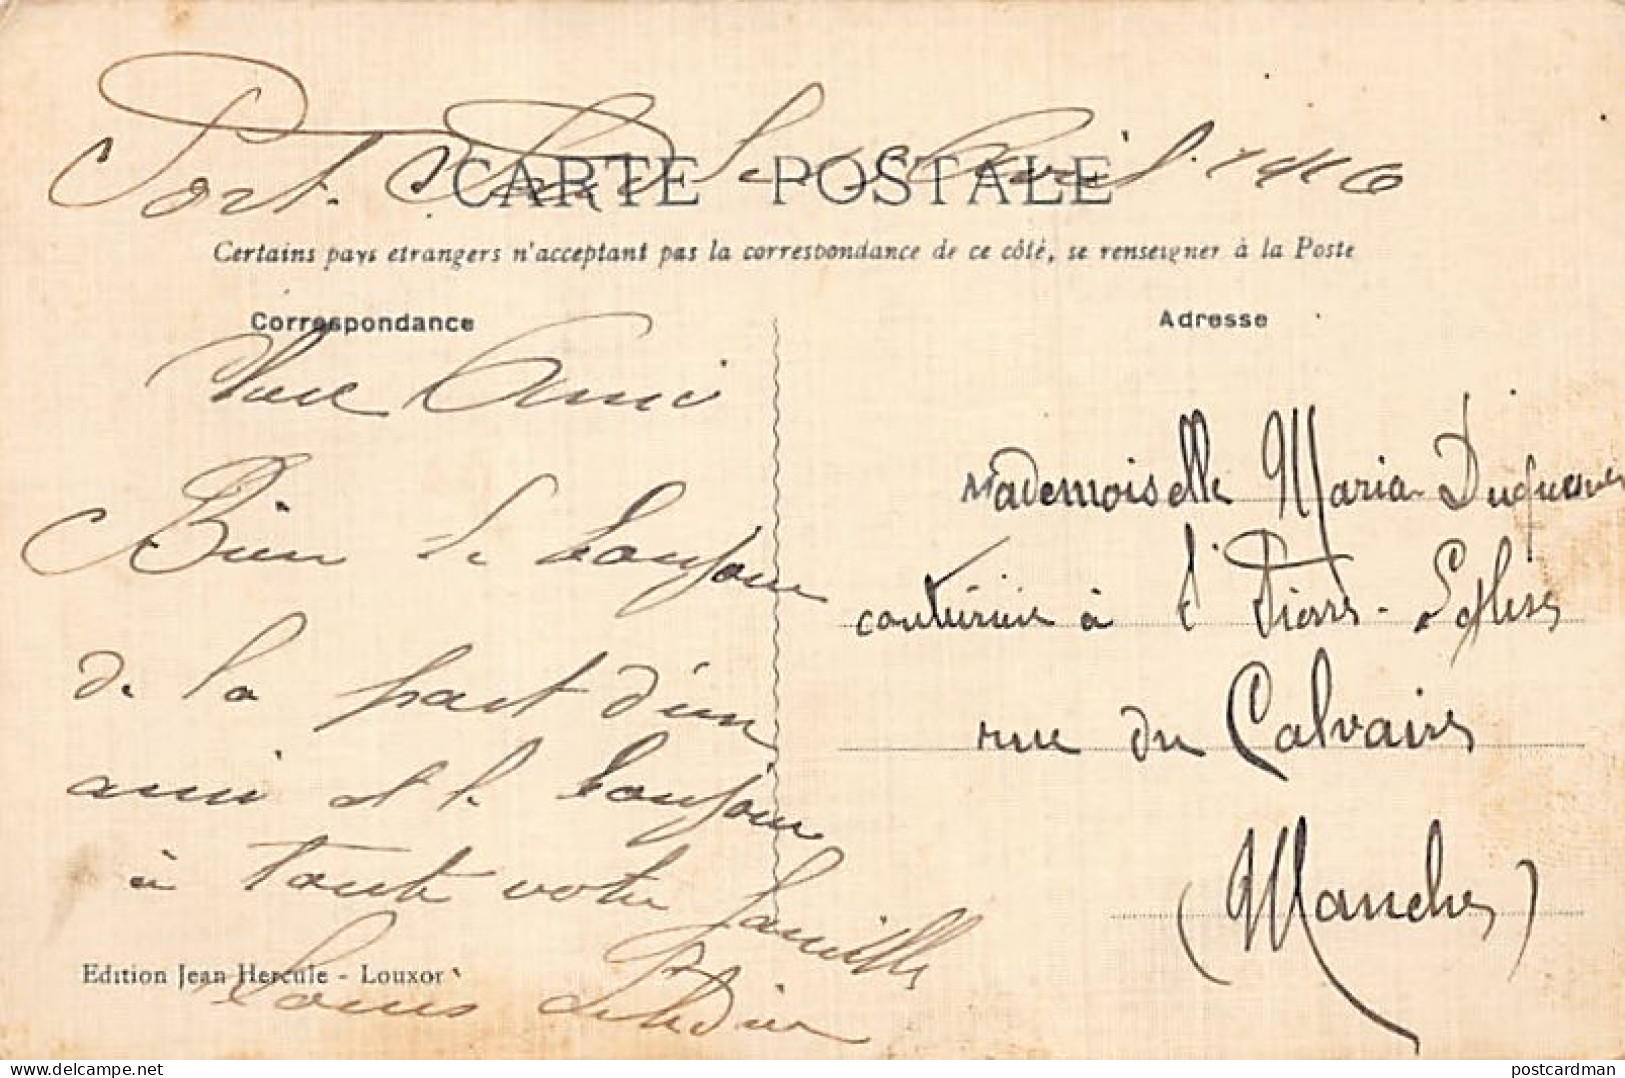 Port Said le Avril 1916
CARTE POSTALE
Certains pays etrangers n'acceptant pas la correspondance de ce côté, se renseigner à la Poste
Correspondance
Adresse
Cher Ami
Bien de bonjour
de la part d'un
ami et le bonjour
à toute votre famille
Louis
Mademoiselle Maria Duquesne
couturière à St Pierre-Eglise
rue du Calvaire
(Manche)
Edition Jean Hercule - Louxor
delcampe.net
postcardman